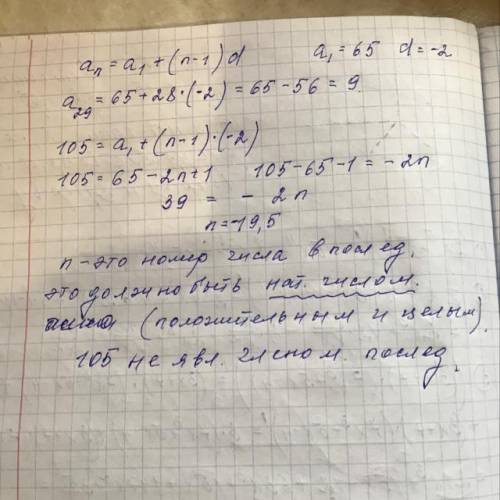 aₙ = a₁ + (n-1)d a₁ = 65 d = -2
a₂₉ = 65 + 28·(-2) = 65 - 56 = 9
105 = a₁ + (n-1)·(-2)
105 = 65 - 2n + 1 105 - 65 - 1 = - 2n
39 = - 2n
n = -19,5
n - это номер числа в послед.
это должно быть нат. числом.
(положительным и целым)
105 не явл. членом. послед.